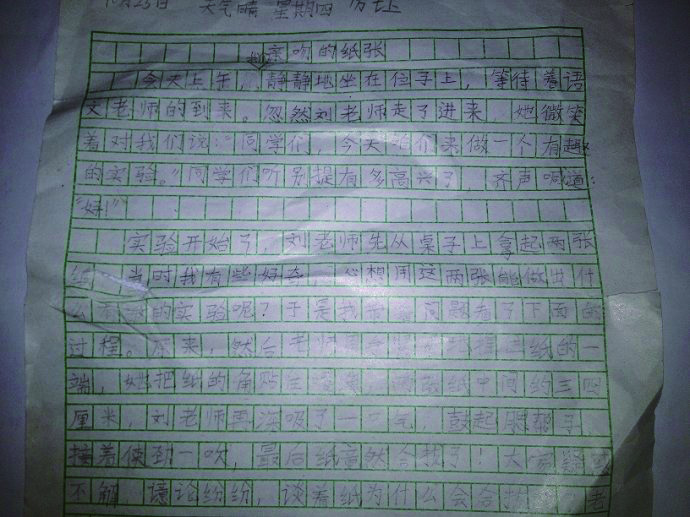 月25日 天气晴 星期四
亲吻的纸张
今天上午,静静地坐在位子上,等待着语
文老师的到来。忽然刘老师走了进来,她微笑
着对我们说:“同学们,今天咱们来做一个有趣
的实验。”同学们听别提有多高兴了,齐声喊道:
“好!”
实验开始了,刘老师先从桌子上拿起两张
纸,当时我有些好奇,心想用这两张能做出什
么有的实验呢?于是我问题看了下面的
过程。原来,然后老师纸的一
端,她把纸的角贴在纸中间约三四
厘米,刘老师再深吸了一口气,鼓起腮帮子,
接着使劲一吹,最后纸竟然合拢了!大家疑
不解,议论纷纷,谈着纸为什么会合老